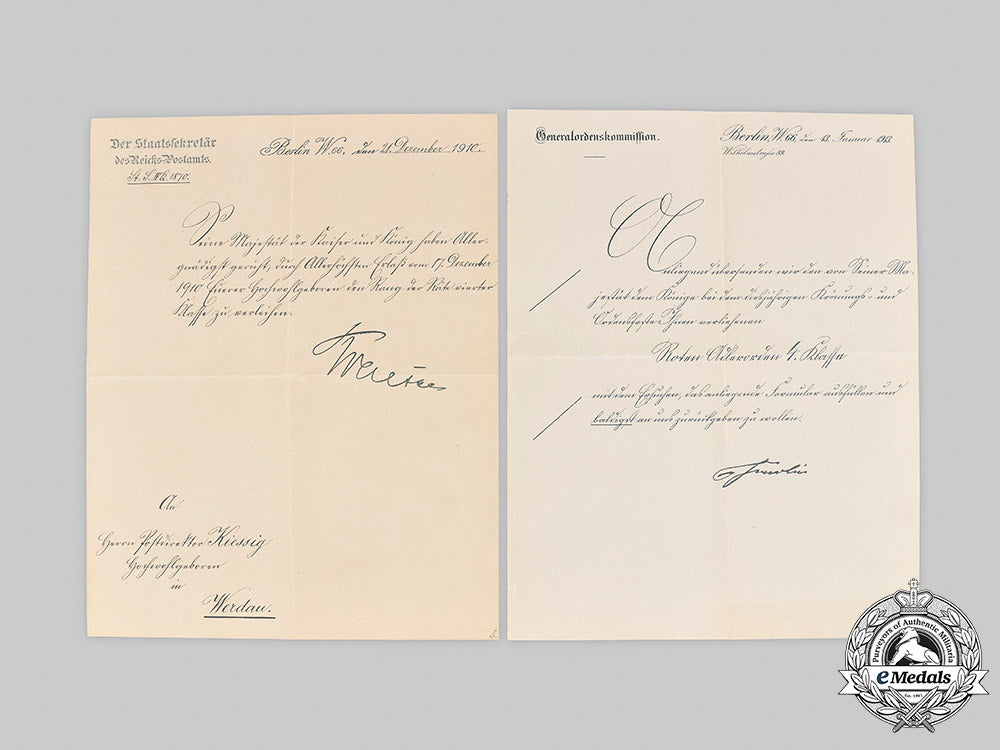 Der Staatssekretär
des Reichs-Postamts.
Berlin W66, den 21 Dezember 1910.
Seine Majestät der Kaiser und König haben Aller-
gnädigst geruht, durch Allerhöchsten Erlaß vom 17. Dezember
1910 Euerer Hochwohlgeboren den Rang der Räte vierter
Klasse zu verleihen.
An
Herrn Postdirektor Kiessig
Hochwohlgeboren
in
Werdau.
5.
Generalordenskommission.
Berlin, W66, den Januar 1913.
Wilhelmstraße
Anliegend übersenden wir den von Seiner Ma-
jestät dem Könige bei dem diesjährigen Krönungs- und
Ordensfeste Ihnen verliehenen
Roten Adlerorden 4. Klasse
mit dem Ersuchen, das anliegende Formular ausfüllen und
baldigst an uns zurückgeben zu wollen.
Purveyors of Authentic Militaria
eMedals